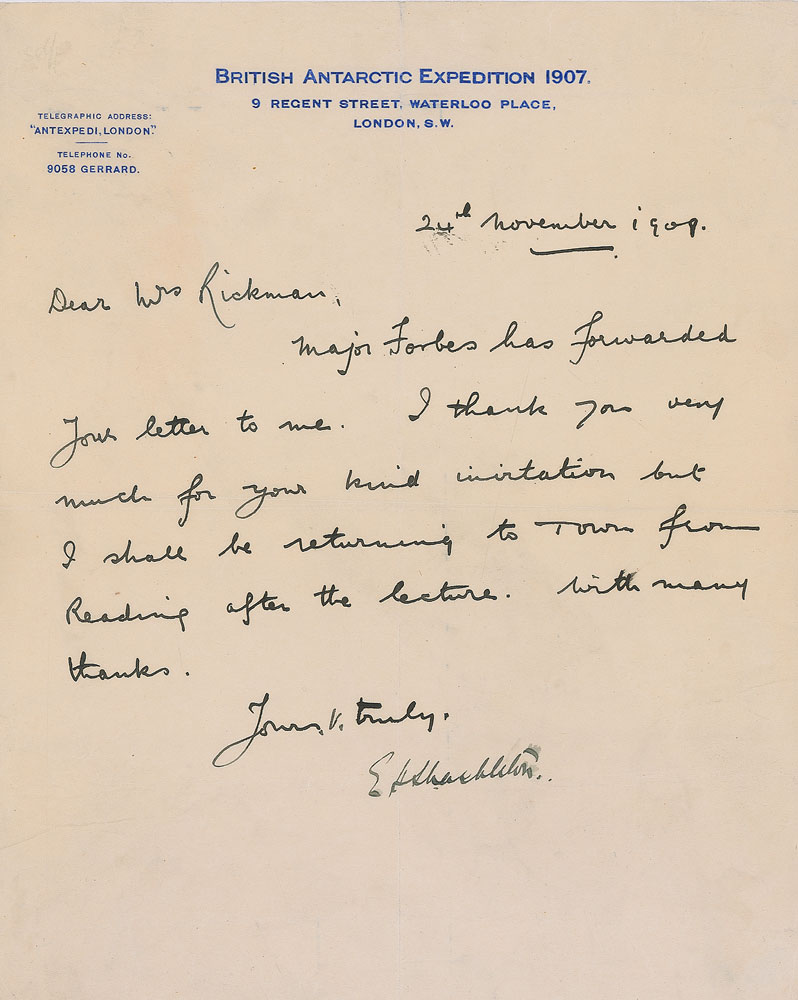 BRITISH ANTARCTIC EXPEDITION 1907.
9 REGENT STREET, WATERLOO PLACE,
LONDON, S.W.
TELEGRAPHIC ADDRESS:
"ANTEXPEDI, LONDON."
TELEPHONE No.
9058 GERRARD.
24th November 1909.
Dear Mrs Rickman,
Major Forbes has forwarded
Your letter to me. I thank you very
much for your kind invitation but
I shall be returning to Town from
Reading after the lecture. With many
thanks.
Yours. V. truly.
E H Shackleton..